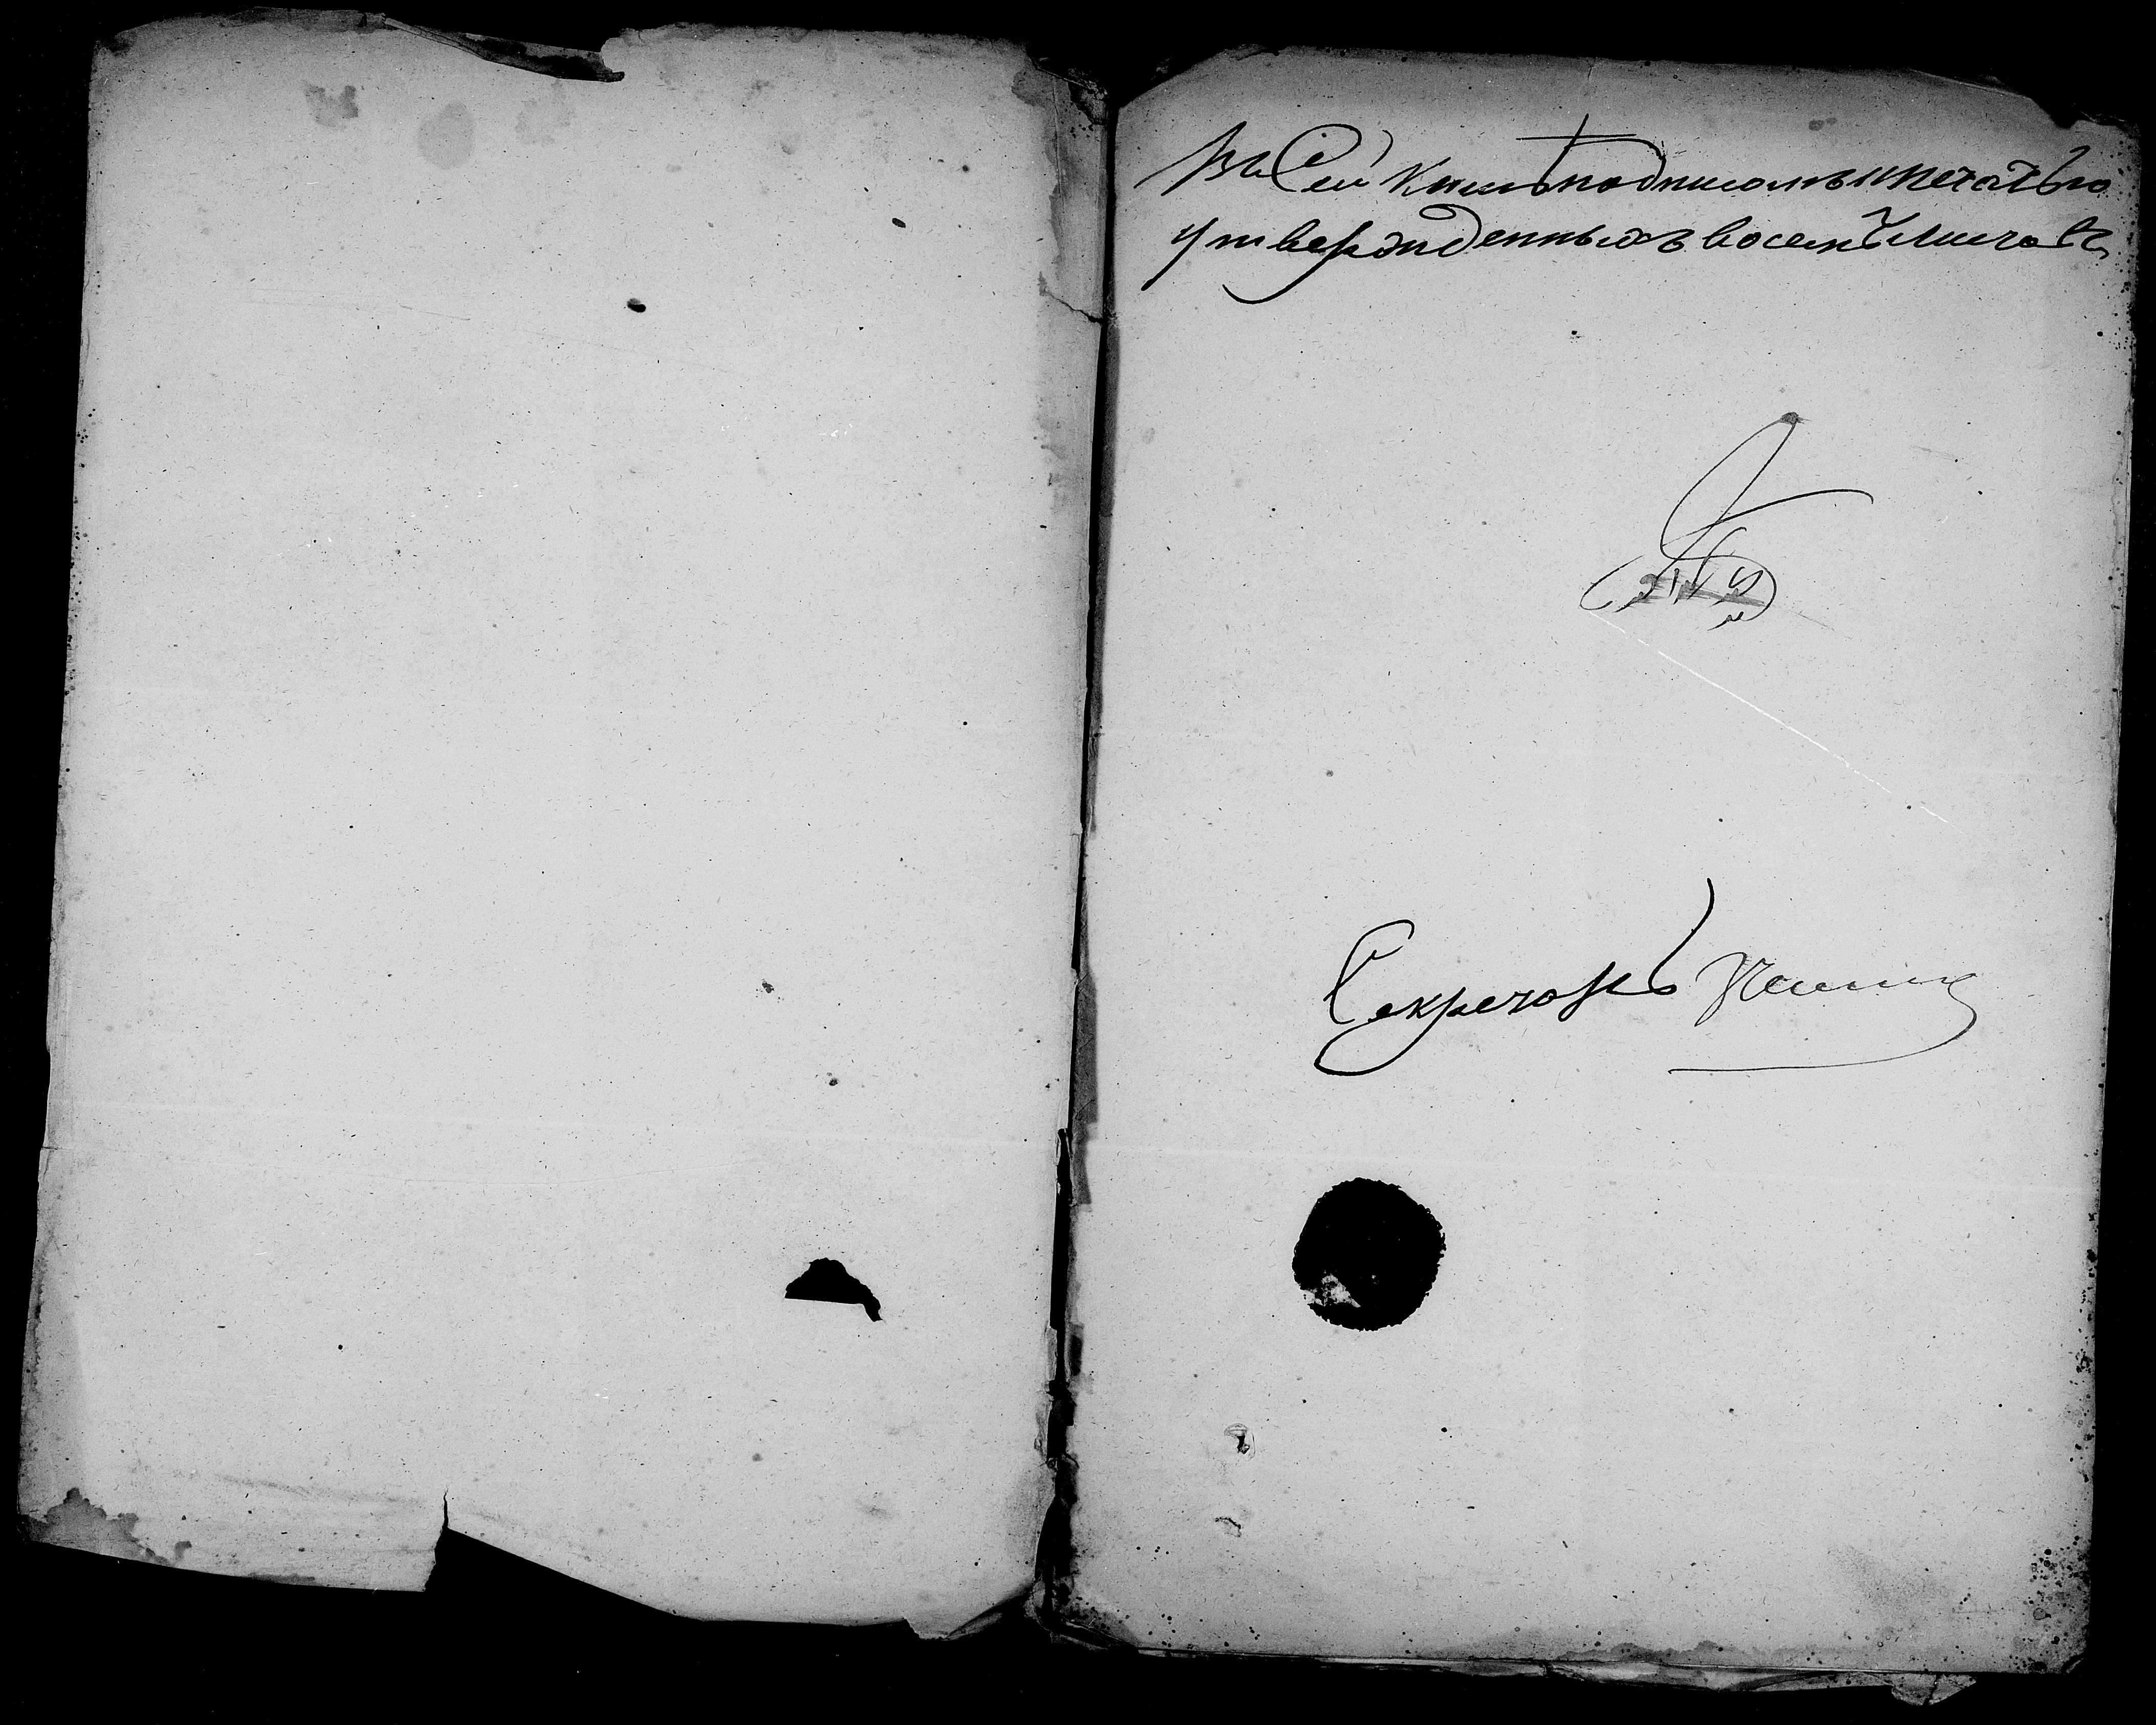 Въ Сей книгѣ подписомъ и печатью
утвержденныхъ восемь листовъ
Секретарь